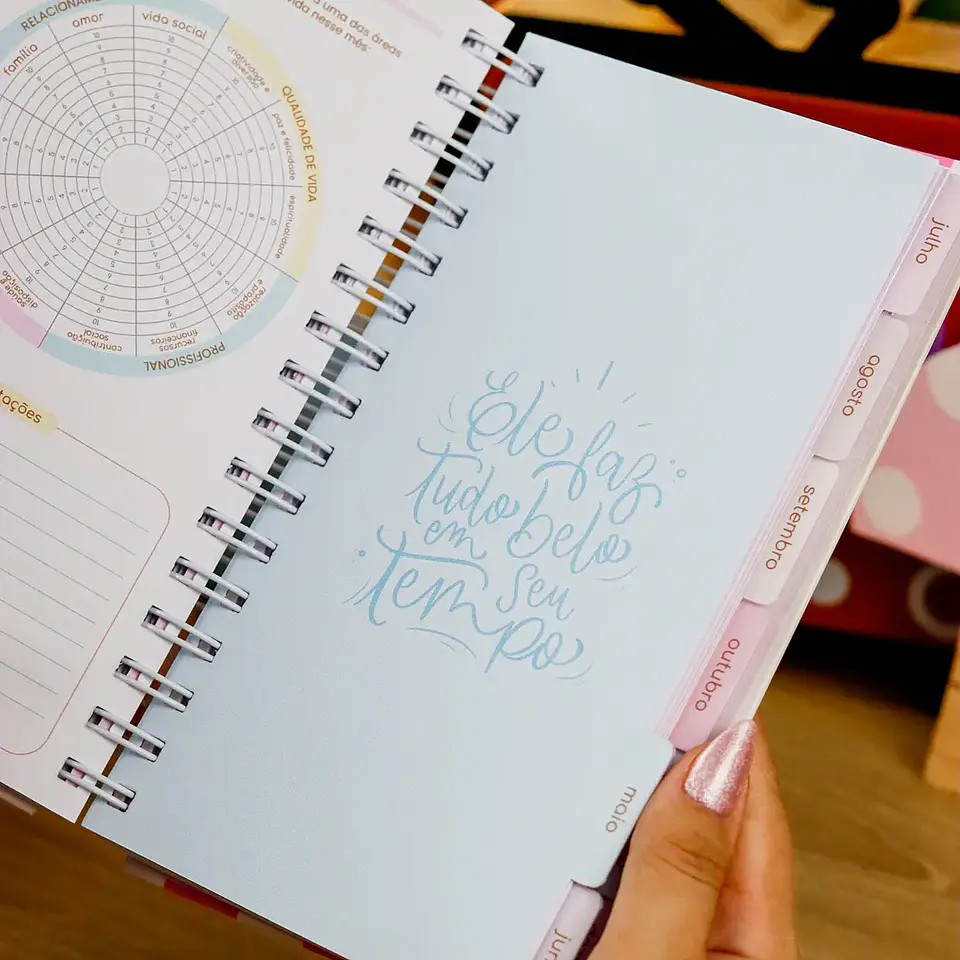 uma das áreas
vida nesse mês:
RELACIONAM
família
amor
vida social
criatividade e
diversão
QUALIDADE DE VIDA
paz e felicidade
espiritualidade
realização
e propósito
recursos
financeiros
PROFISSIONAL
contribuição
social
saúde e
disposição
tações
Ele faz
Tudo belo
em seu
Tempo
julho
agosto
setembro
outubro
maio
jun